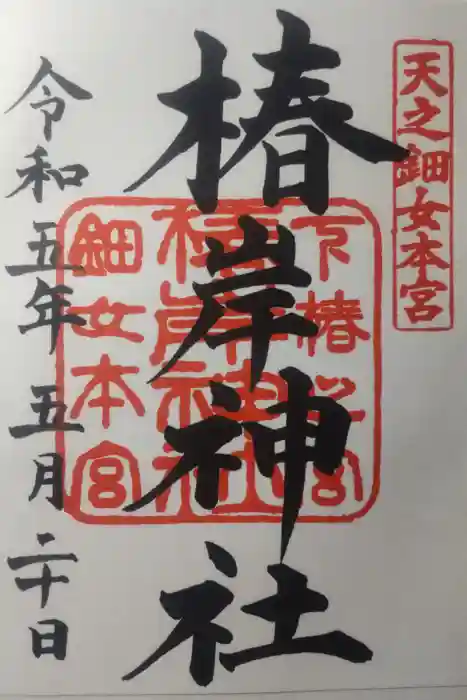 天之鈿女本宮
椿岸神社
椿之宮
椿岸神社
鈿女本宮
令和五年五月二十日